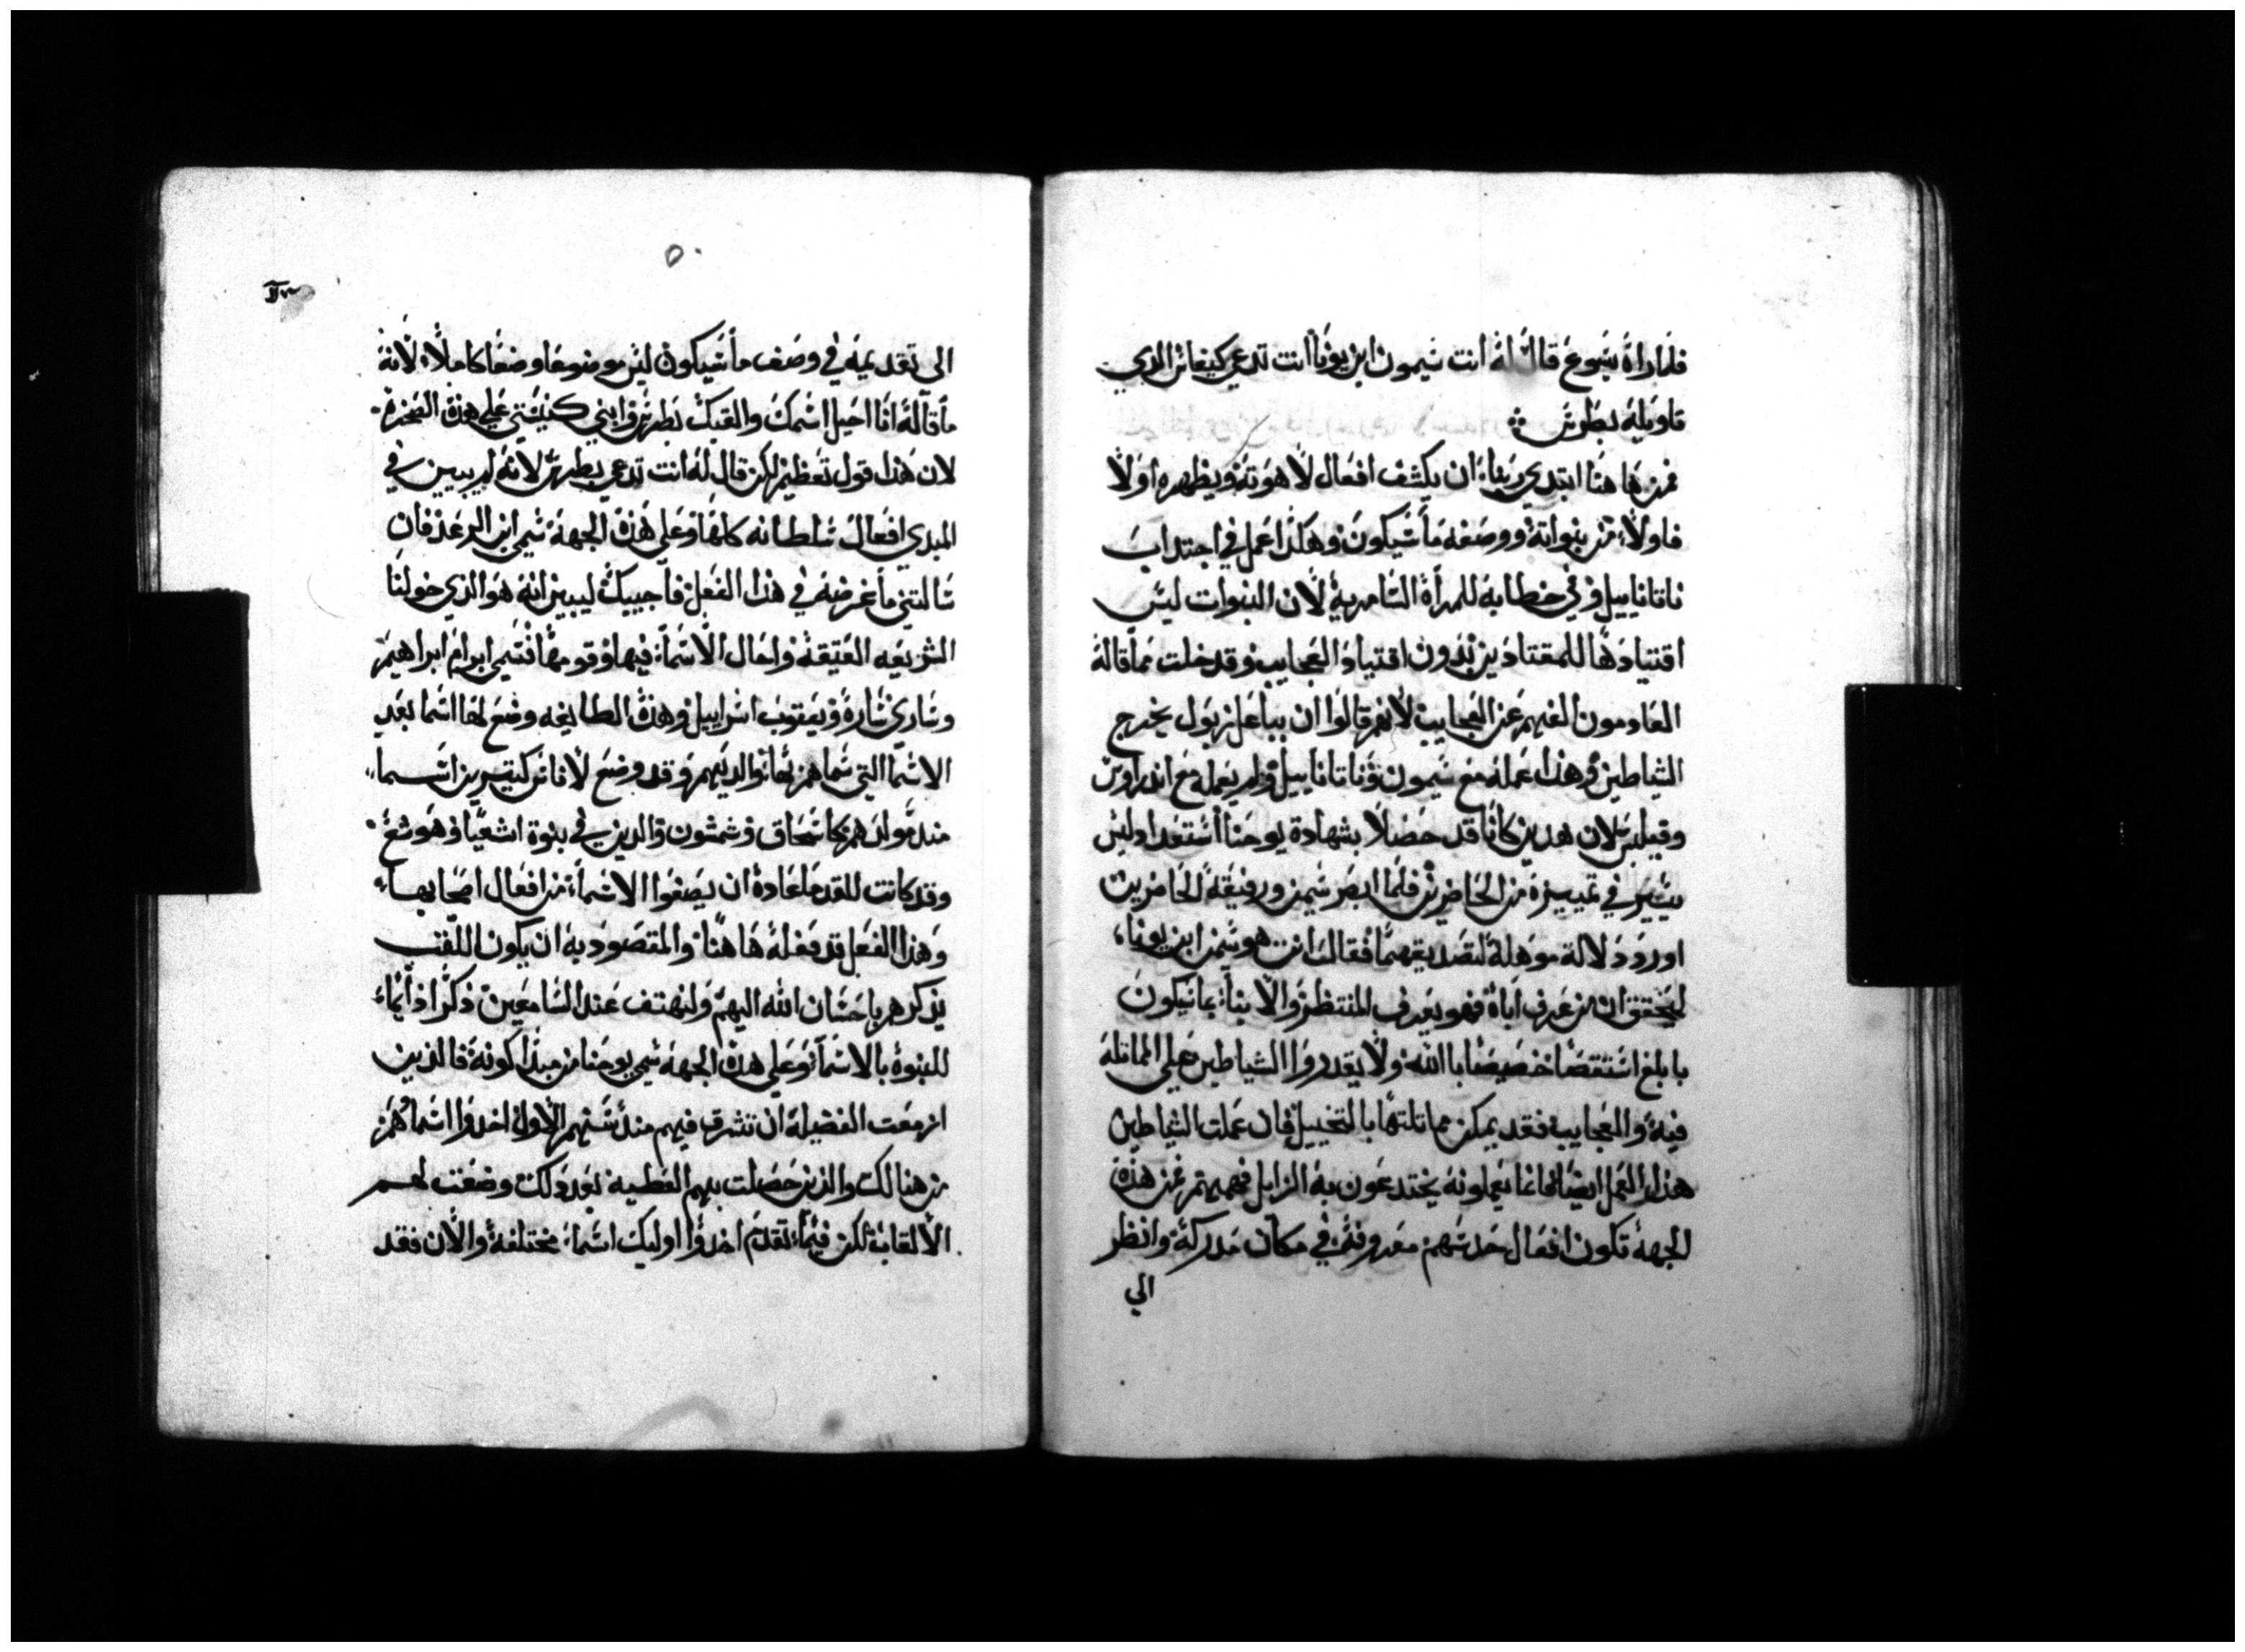 فلما راه يسوع قال له انت شيمون ابن يونا انت تدعى كيفاس الذي
تاويله بطرس
فمن هاهنا ابتدي ربنا ان يكشف افعال لاهوته ويظهره اولا
فاولا من بنواته ووصفه ما سيكون وهكذا عمل في اجتداب
ناتاناييل وفي خطابه للمراة السامرية لان البنوات ليس
اقتيادها للمقتادين بدون اقتياد العجايب وقد خلت مما قاله
العادمون الفهم عن العجايب لانهم قالوا ان بباعلزبول يخرج
الشياطين وهذا عمله مع شيمون وناتاناييل ولم يعمله مع اندراوس
وفيلبس لان هدين كانا قد حصلا بشهادة يوحنا استعدادا ليس
بيسير في تمييزه من الحاضرين فلما ابصر شيمن ورفيقه الحاضرين
اورد دلالة موهلة لتصديقهما فقال انت هو شيمن ابن يونا
ليحقق ان من عرف اباه فهو يعرف المنتظر والانبا بما سيكون
بابلغ استقصا خصيصا باالله ولا يقدروا الشياطين على المماتلة
فيه والعجايب فقد يمكن مماتلتها بالتخييل فان عملت الشياطين
هذا العمل ايضا فانما يعملونه يختدعون به الزايل فهمهم فمن هذه
الجهة تكون افعال حدسهم معروفة في مكان مدركة وانظر
الي
٥٠
الى تقديمه في وصف ما سيكون ليس موضوعا وضعا كاملا لانه
ما قال له انا احيل اسمك والقبك بطرس وابني كنيستي على هذه الصخرة
لان هذا قول تعظيم لكن قال له انت تدعى بطرس لانه لم يبين في
المبدي افعال سلطانه كلها وعلى هذه الجهة سمى ابن الرعد فان
سالتني ما غرضه في هذا الفعل فاجيبك ليبين انه هو الذي خولنا
الشريعه العتيقة واحال الاسما فيها وقومها فسمى ابرام ابراهيم
وساري سارة ويعقوب اسراييل وهذه الطايفه وضع لها اسما بعد
الاسما التي سماهم بها والديهم وقد وضع لاناس كتيرين اسما
مند مولدهم كاسحاق وشمشون والدين في بنوة اشعيا وهوشع
وقد كانت للقدما عادة ان يصفوا الاسما من افعال اصحابها
وهذا الفعل قد فعله هاهنا والمقصود به ان يكون اللقب
يذكرهم باحسان الله اليهم ولنهتف عند السامعين ذكرا دايما
للبنوة بالاسما وعلى هذه الجهة سمى يوحنا من مبدا كونه فالذين
ازمعت الفضيلة ان تشرق فيهم مند سنهم الاولى اخدوا اسماهم
من هنالك والذين حصلت بهم العطيه بعد دلك وضعت لهم
الالقاب لكن فيما تقدم اخدوا اوليك اسما مختلفة والان فقد